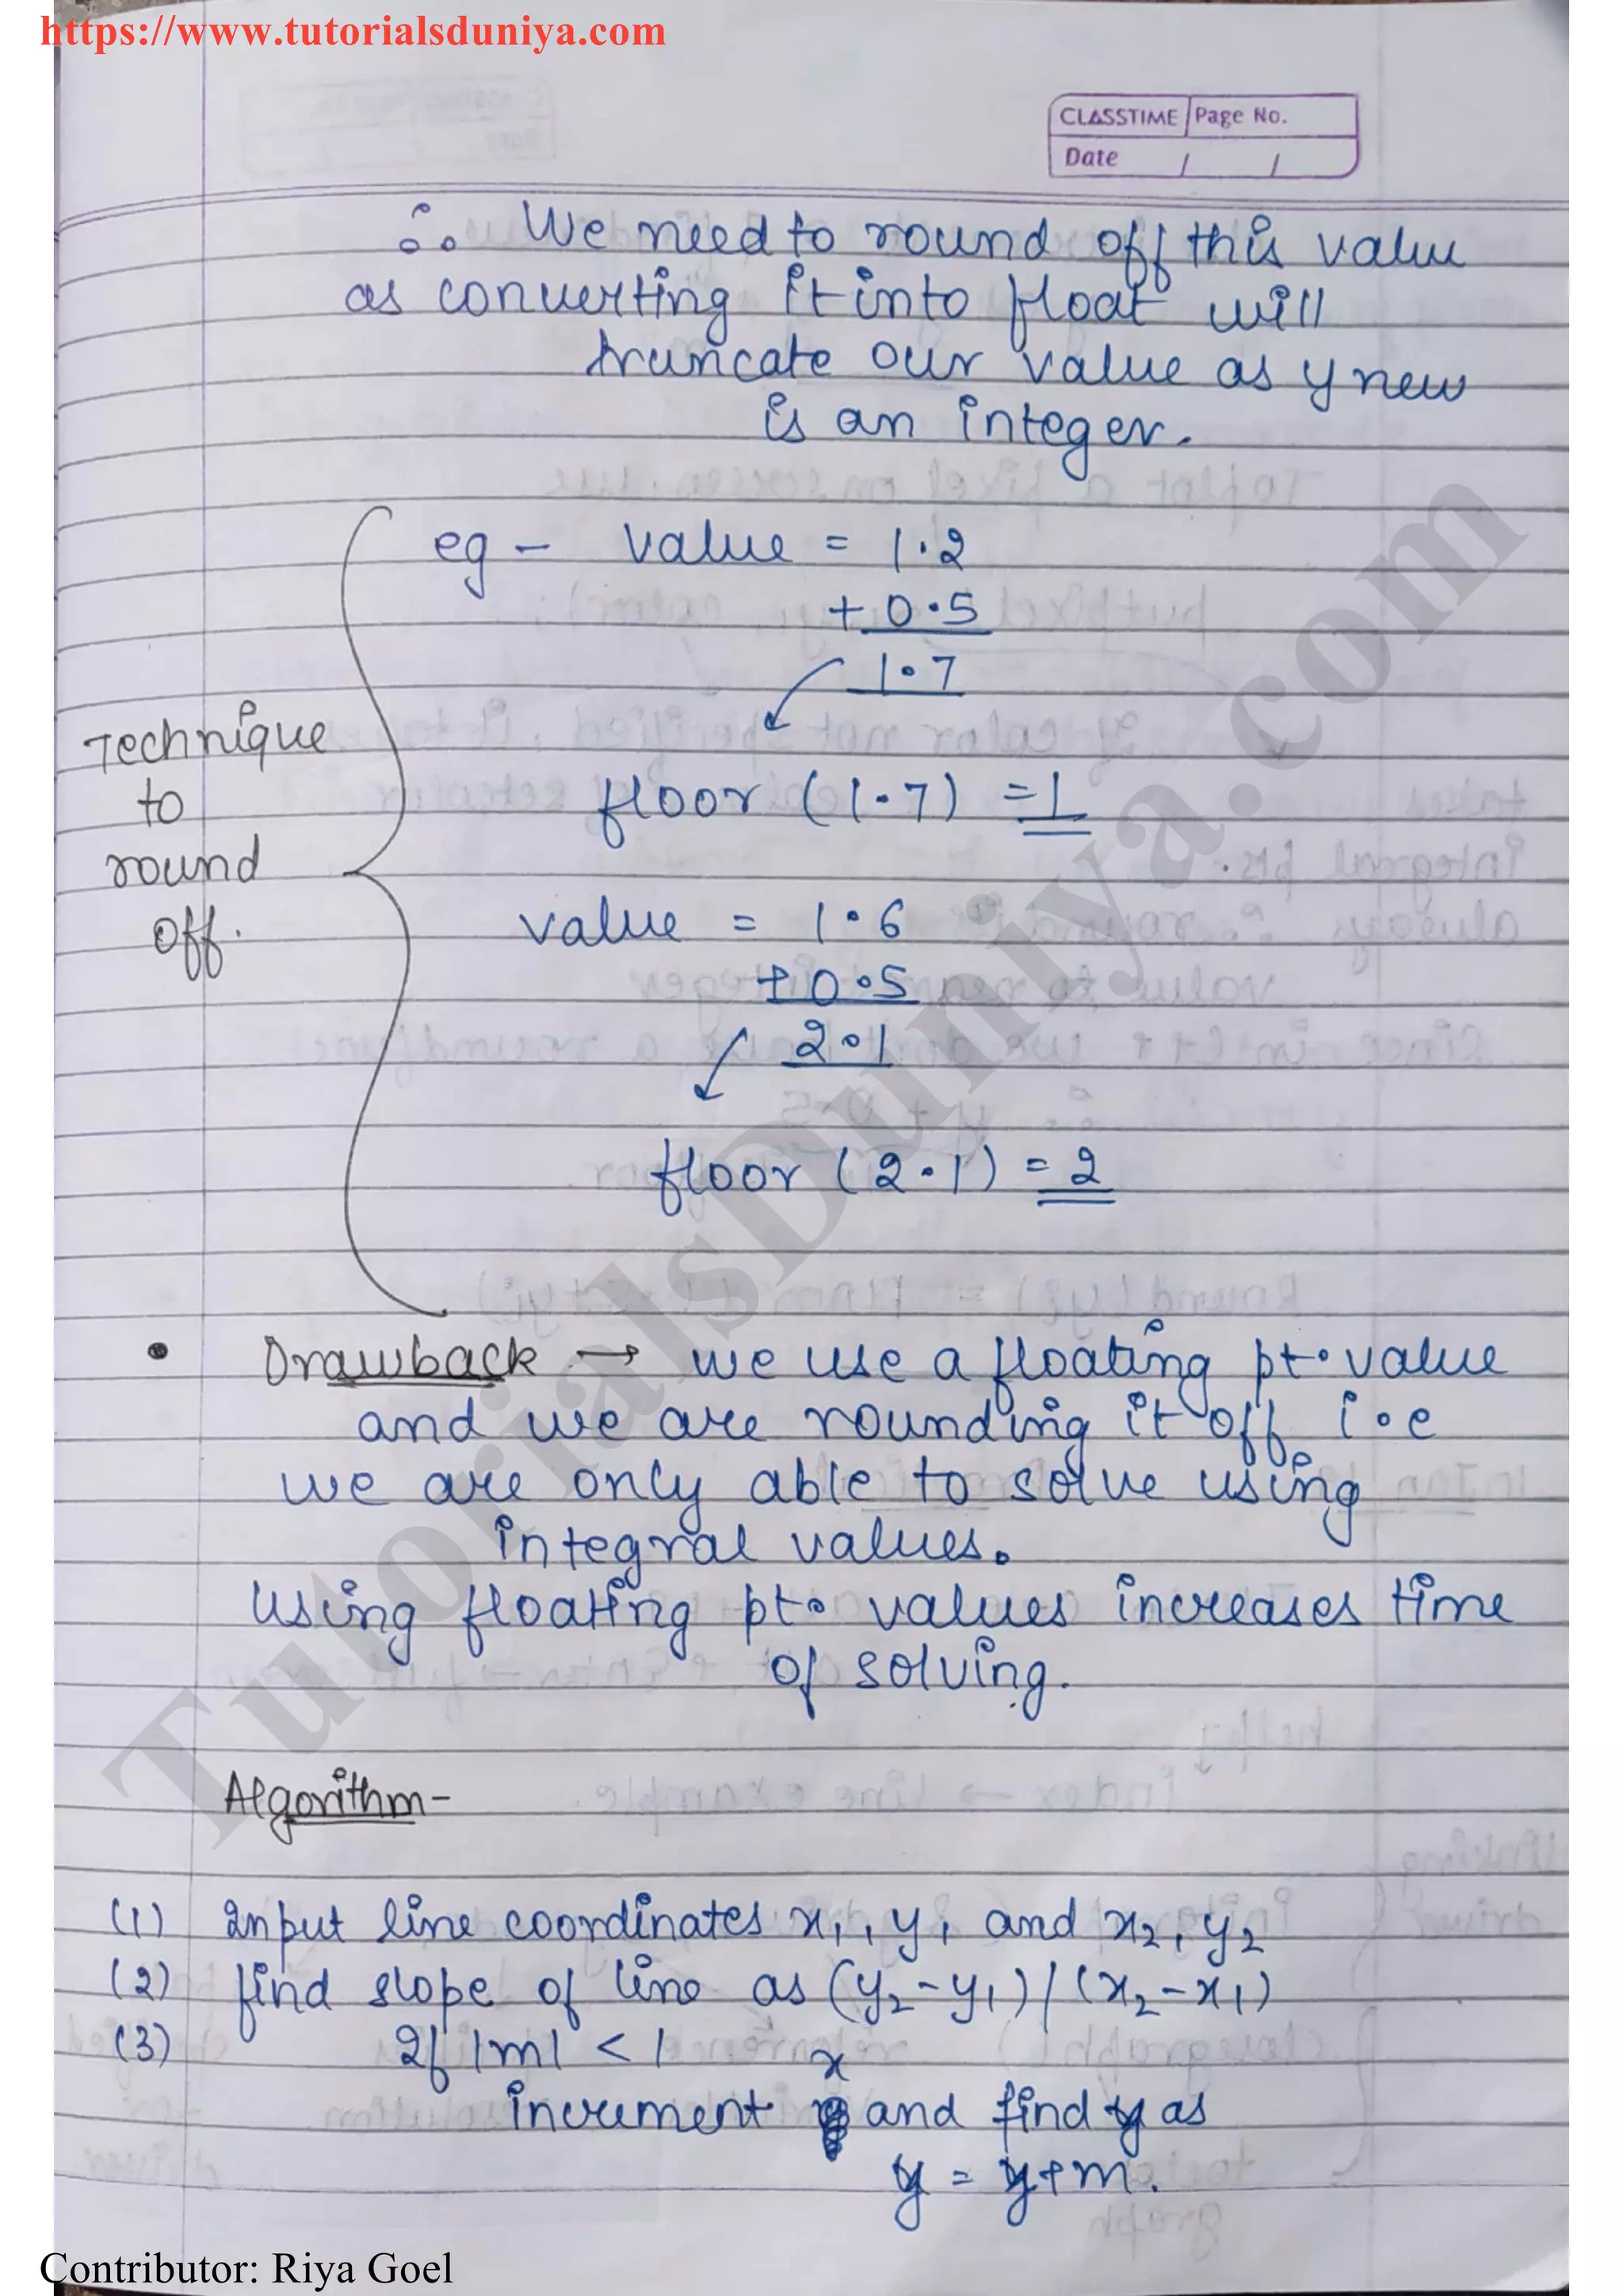 https://www.tutorialsduniya.com
CLASSTIME Page No.
Date / /
∴ We need to round off this value
as converting it into float will
truncate our value as y new
is an integer.
eg - value = 1.2
+ 0.5
1.7
floor (1.7) = 1
Technique
to
round
off.
value = 1.6
+ 0.5
2.1
floor (2.1) = 2
• Drawback → we use a floating pt. value
and we are rounding it off i.e
we are only able to solve using
integral values.
Using floating pt. values increases time
of solving.
Algorithm-
(1) Input line coordinates x1, y1 and x2, y2
(2) find slope of line as (y2-y1)/(x2-x1)
(3) If |m| < 1
increment x and find y as
y = y+m.
TutorialsDuniya.com
Contributor: Riya Goel